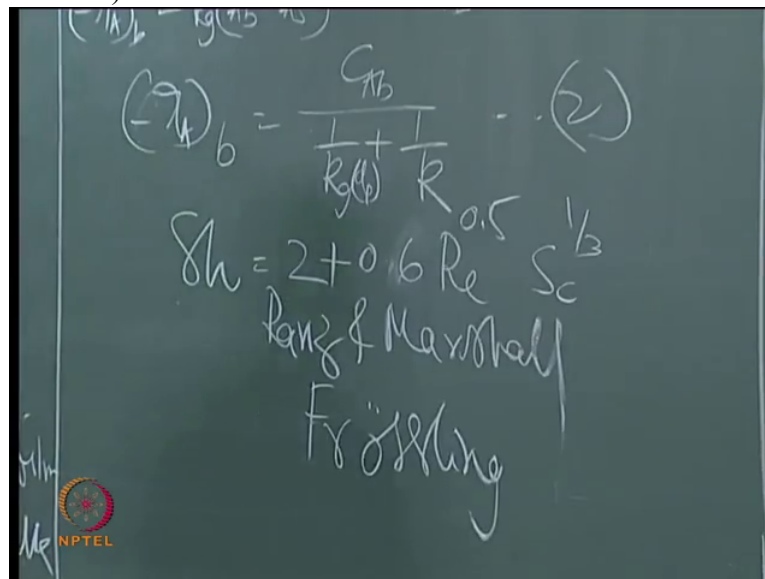 (-r_A)_b = k_g(
(-r_A)_b = C_Ab / (1/k_g(u_p) + 1/k) - - - (2)
Sh = 2 + 0.6 Re^0.5 Sc^1/3
Ranz & Marshall
Frössling
NPTEL